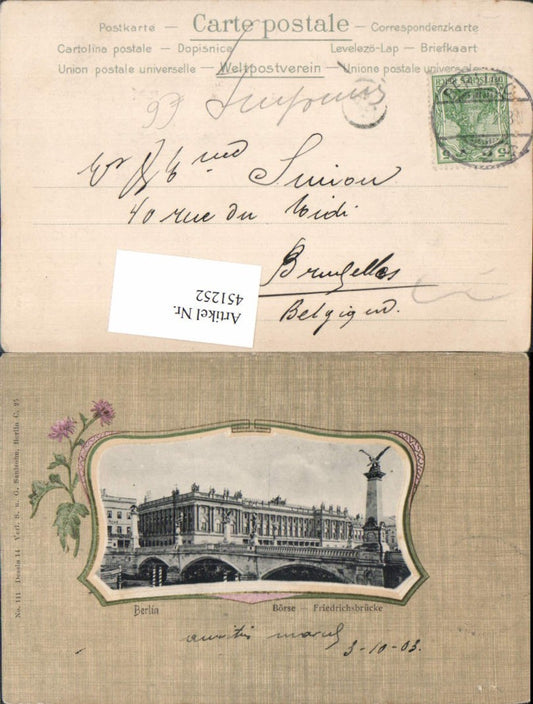 Postkarte — Carte postale — Correspondenzkarte
Cartolina postale — Dopisnice Levelező-Lap — Briefkaart
Union postale universelle — Weltpostverein — Unione postale universale
Simion
40 rue du Midi
Bruxelles
Belgique.
Artikel Nr.
451252
No. 111 Dessin 14 Verl. S. u. G. Saulsohn, Berlin C. 25
Berlin Börse — Friedrichsbrücke
3-10-03.